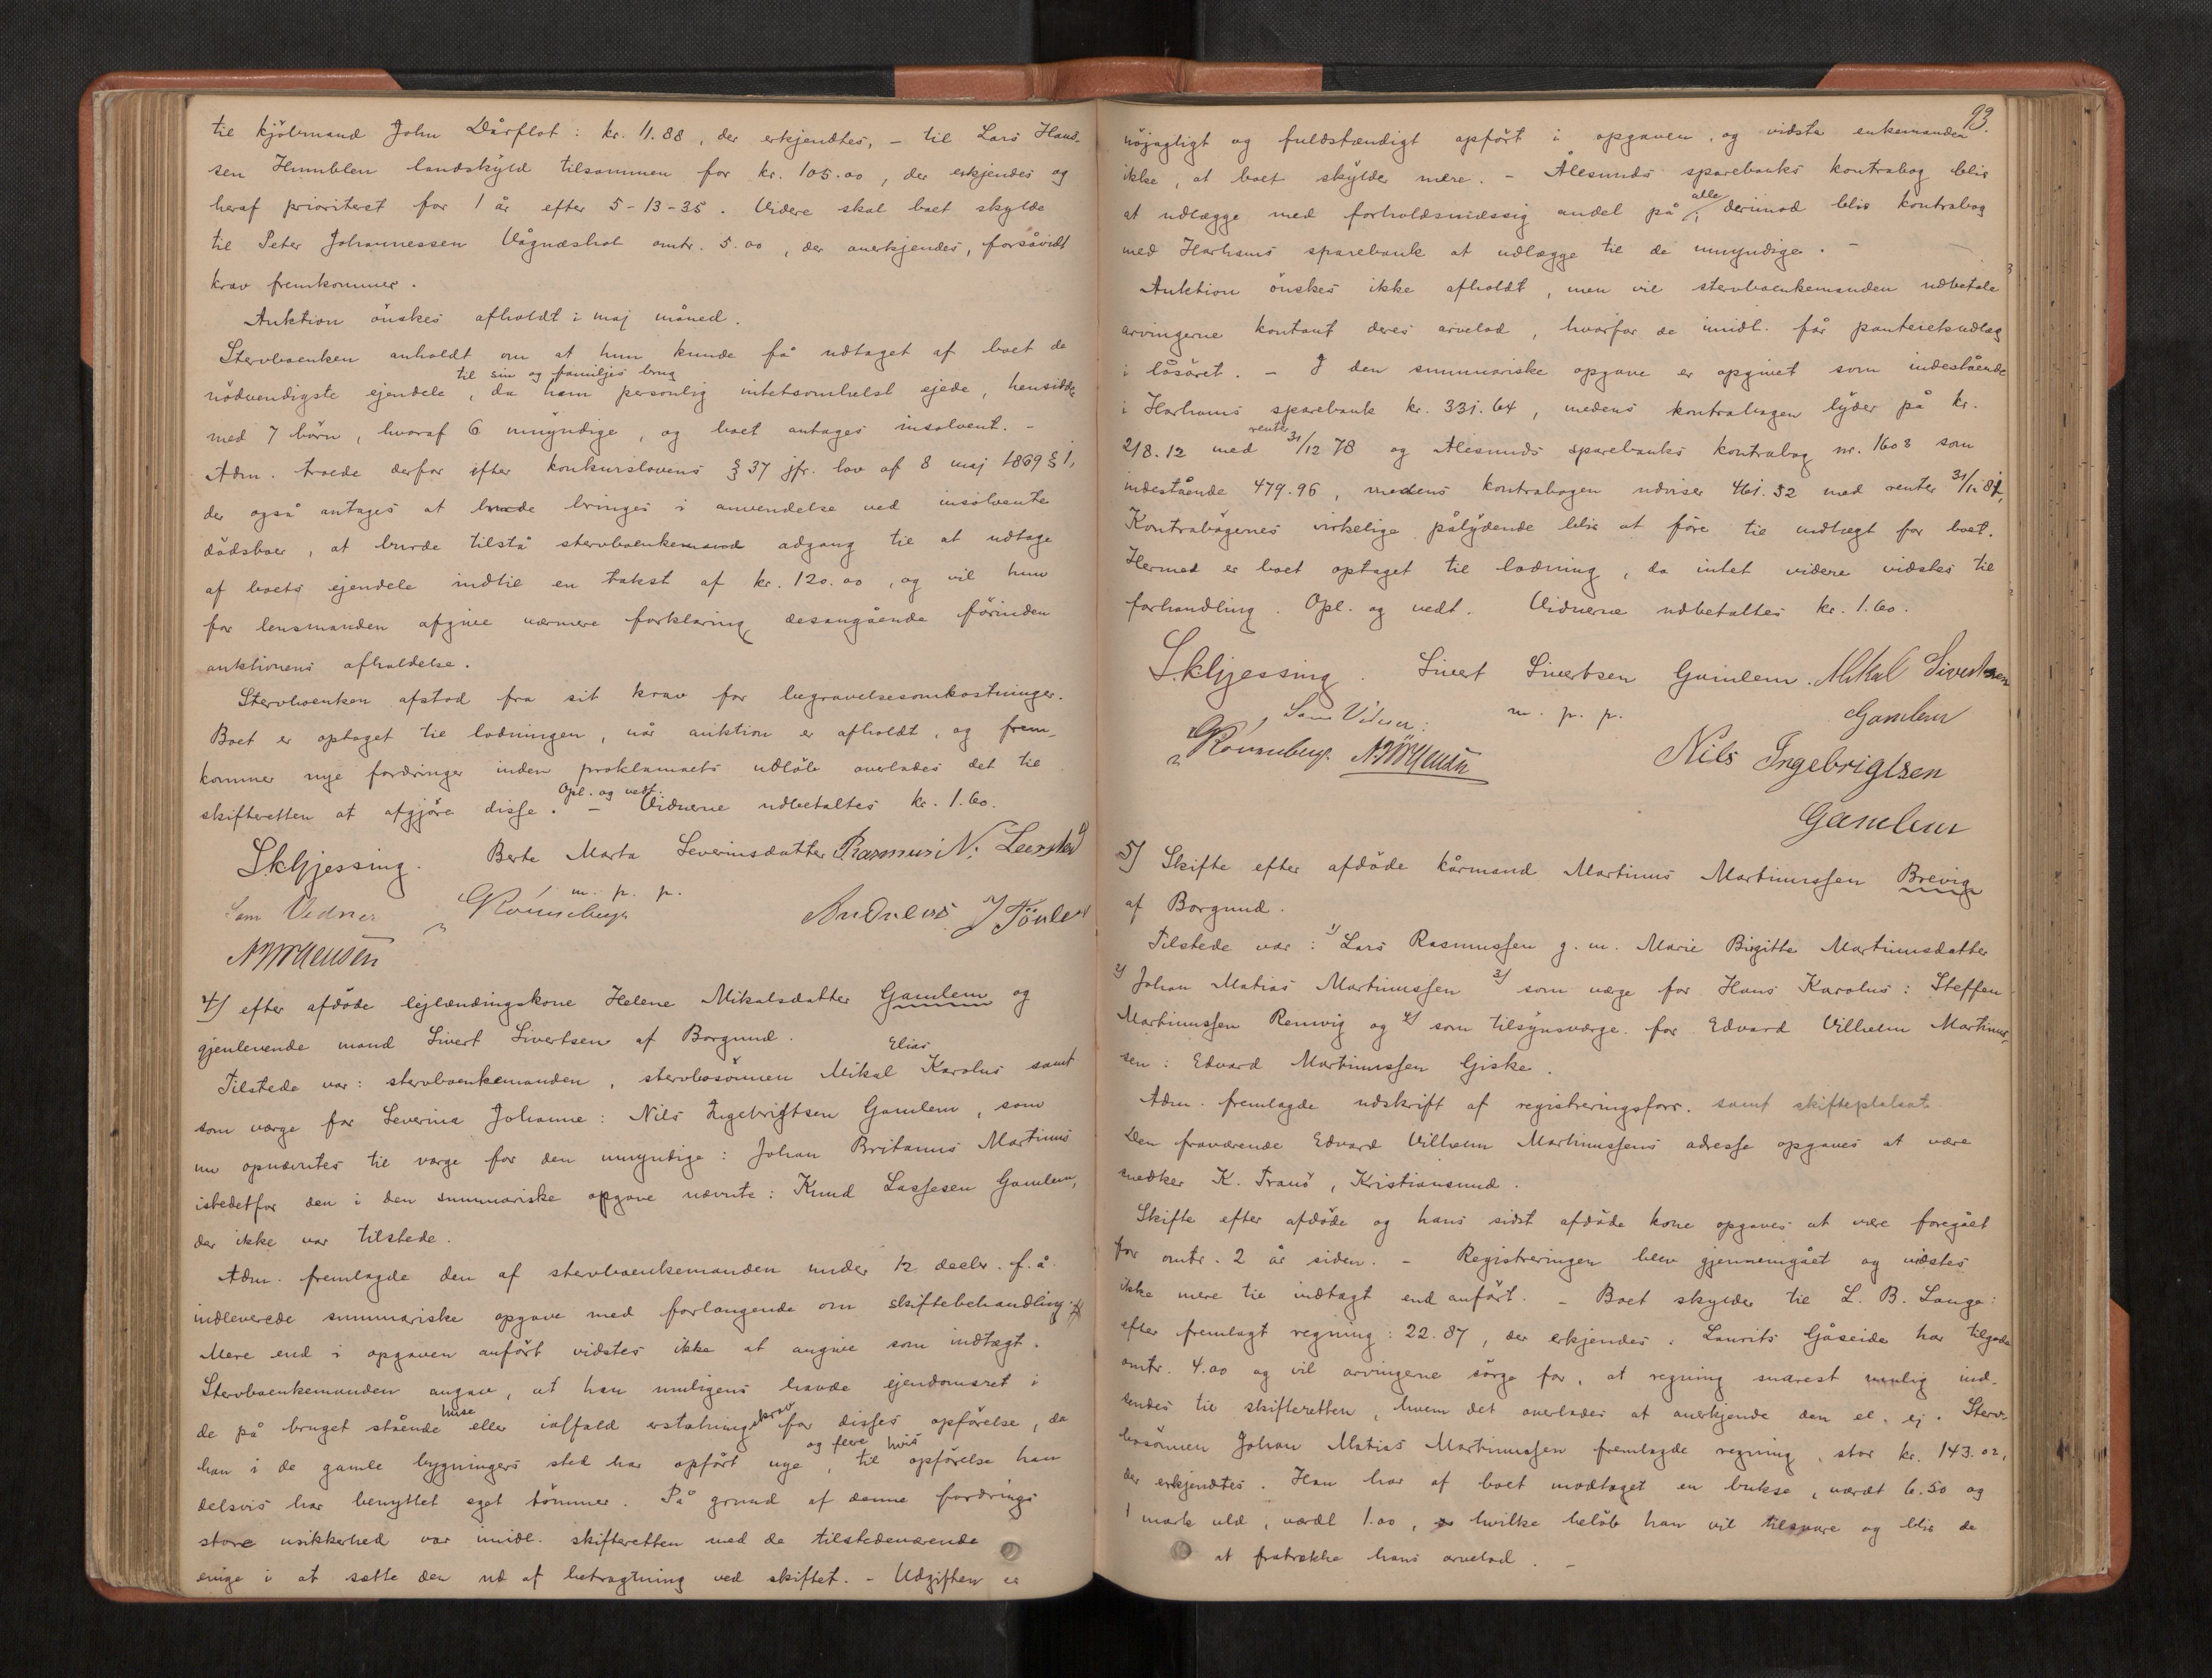 til kjöbmand John Dårflot: kr. 11.88, der erkjendtes, – til Lars Hans-
sen Humblen landskyld tilsammen for kr. 105.00, der erkjendes og
heraf prioritet for 1 år efter 5-13-35. Videre skal boet skylde
til Peter Johannessen Vågneshol omtr. 5.00, der anerkjendes, forsåvidt
krav fremkommer.
Auktion önskes afholdt i maj måned.
Stervboenken anholdt om at hun kunde få udtaget af boet de
til sin og familjes brug
nödvendigste ejendele, da hun personlig intetsomhelst ejede, hensidder
med 7 börn, hvoraf 6 umyndige, og boet antages insolvent. –
Adm. troede derfor efter konkurslovens § 37 jfr. lov af 8 maj 1869 § 1,
der også antages at burde bringes i anvendelse ved insolvente
dödsboer, at burde tilstå stervboenken adgang til at udtage
af boets ejendele indtil en takst af kr. 120.00, og vil hun
for lensmanden afgive nærmere forklaring desangående förinden
auktionens afholdelse.
Stervboenken afstod fra sit krav for begravelsesomkostninger.
Boet er optaget til lodningen, når auktion er afholdt, og frem-
kommer nye fordringer inden proklamaets udlöb overlades det til
Opl. og vedt.
skifteretten at afgjöre disse. – Vidnerne udbetaltes kr. 1.60.
Skhjessing. Berte Marta Severinsdatter Rasmus N. Leersted
m. p. p.
Som Vidner GRönneberg Andreas J Tönle
N Jörgensen
4) efter afdöde lejlændingskone Helene Mikalsdatter Gamlem og
gjenlevende mand Sivert Sivertsen af Borgund.
Elias
Tilstede var: stervboenkemanden, stervbosönnen Mikal Karolus samt
som værge for Severine Johanne: Nils Ingebrigtsen Gamlem, som
nu opnævntes til værge for den umyndige: Johan Britanus Martinus
istedetfor den i den summariske opgave nævnte: Knud Lassesen Gamlem,
der ikke var tilstede.
Adm. fremlagde den af stervboenkemanden under 12 decbr. f. å.
indleverede summariske opgave med forlangende om skiftebehandling.
Mere end i opgaven anfört vidstes ikke at angive som indtægt.
Stervboenkemanden angav, at han muligens havde ejendomsret i
huse krav
de på bruget stående eller ialfald erstatnings for disses opförelse, da
og flere hvis
han i de gamle bygningers sted har opfört nye, til opförelse han
delsvis har benyttet eget tömmer. På grund af denne fordrings
store usikkerhed var imidl. skifteretten med de tilstedeværende
enige i at sætte den ud af betragtning ved skiftet. – Udgiften er
93.
nöjagtigt og fuldstændigt opfört i opgaven, og vidste enkemanden
ikke, at boet skylder mere. – Ålesunds sparebanks kontrabog blir
alle
at udlægge med forholdsmæssig andel på, derimod blir kontrabog
med Harhams sparebank at udlægge til de umyndige. –
Auktion önskes ikke afholdt, men vil stervboenkemanden udbetale
arvingerne kontant deres arvelod, hvorfor de imidl. får panteretsudlæg
i lösöret. – I den summariske opgave er opgivet som indestående
i Harhams sparebank kr. 331.64, medens kontrabogen lyder på kr.
renter
218.12 med 31/12 78 og Ålesunds sparebanks kontrabog nr. 1608 som
indestående 479.96, medens kontrabogen udviser 461.52 med renter 31/12 81,
Kontrabögernes virkelige pålydende blir at före til indtægt for boet.
Hermed er boet optaget til lodning, da intet videre vidstes til
forhandling. Opl. og vedt. Vidnerne udbetaltes kr. 1.60.
Skhjessing. Sivert Sivertsen Gamlem. Mikal Sivertsen
Som Vidner: m. p. p. Gamlem
GRönneberg. N Jörgensen Nils Ingebrigtsen
Gamlem
5) Skifte efter afdöde kårmand Martinus Martinussen Brevig
af Borgund.
Tilstede var: 1) Lars Rasmussen g. m. Marie Birgitte Martinusdatter
2) Johan Matias Martinussen 3) som værge for Hans Karolus: Steffen
Martinussen Remvig og 4) som tilsynsværge for Edvard Vilhelm Martinus-
sen: Edvard Martinussen Giske.
Adm. fremlagde udskrift af registreringsforr. samt skifteplakat
Den fraværende Edvard Vilhelm Martinussens adresse opgaves at være
snedker K. Tranö, Kristiansund.
Skifte efter afdöde og hans sidst afdöde kone opgaves at være foregået
for omtr. 2 år siden. – Registreringen blev gjennemgået og vidstes
ikke mere til indtægt end anfört. – Boet skylder til L. B. Lange:
efter fremlagt regning: 22.87, der erkjendes. Laurits Gåseide har tilgode
omtr. 4.00 og vil arvingerne sörge for, at regning snarest mulig ind-
sendes til skifteretten, hvem det overlades at anerkjende den el. ej. Sterv-
bosönnen Johan Matias Martinussen fremlagde regning, stor kr. 143.02,
der erkjendtes. Han har af boet modtaget en bukse, værdt 6.50 og
1 mark uld, værdt 1.00, hvilke belöb han vil tilsvare og blir de
at fratrække hans arvelod. –